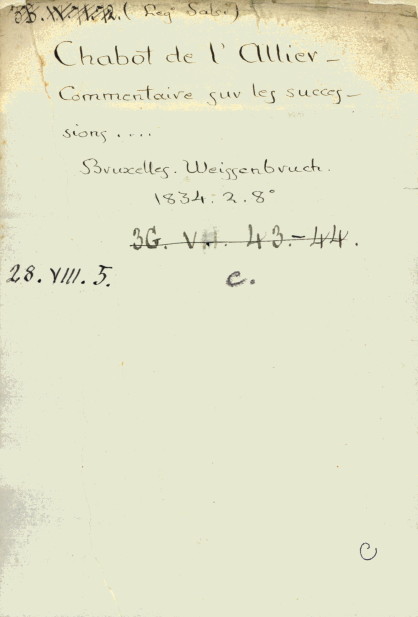 (Leg. Sabi.)
Chabot de l'Allier -
Commentaire sur les succes-
sions....
Bruxelles. Weissenbruch.
1834. 2. 8°
3G. VII. 43.-44.
28. VIII. 5. C.
C